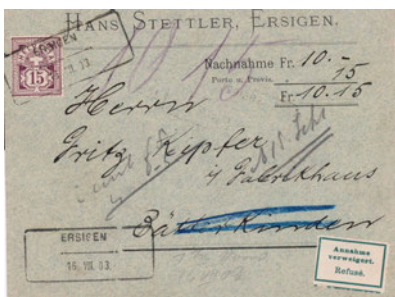 HANS STETTLER, ERSIGEN.
ERSIGEN
III. 03
15
Nachnahme Fr. 10.-
Porto u. Provis. 15
Fr. 10.15
Herrn
Fritz Kepfer
Fabrikhaus
Bätterkinden
ERSIGEN
16. III. 03.
Annahme
verweigert.
Refusé.